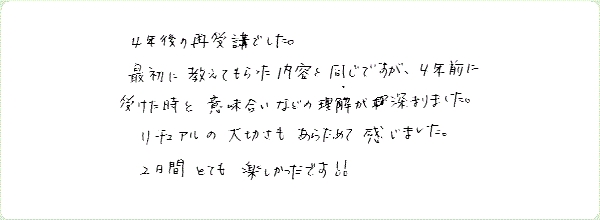 4年後の再受講でした。
最初に教えてもらった内容と同じですが、4年前に
受けた時と意味合いなどの理解が深まりました。
リチュアルの大切さもあらためて感じました。
2日間とても楽しかったです!!